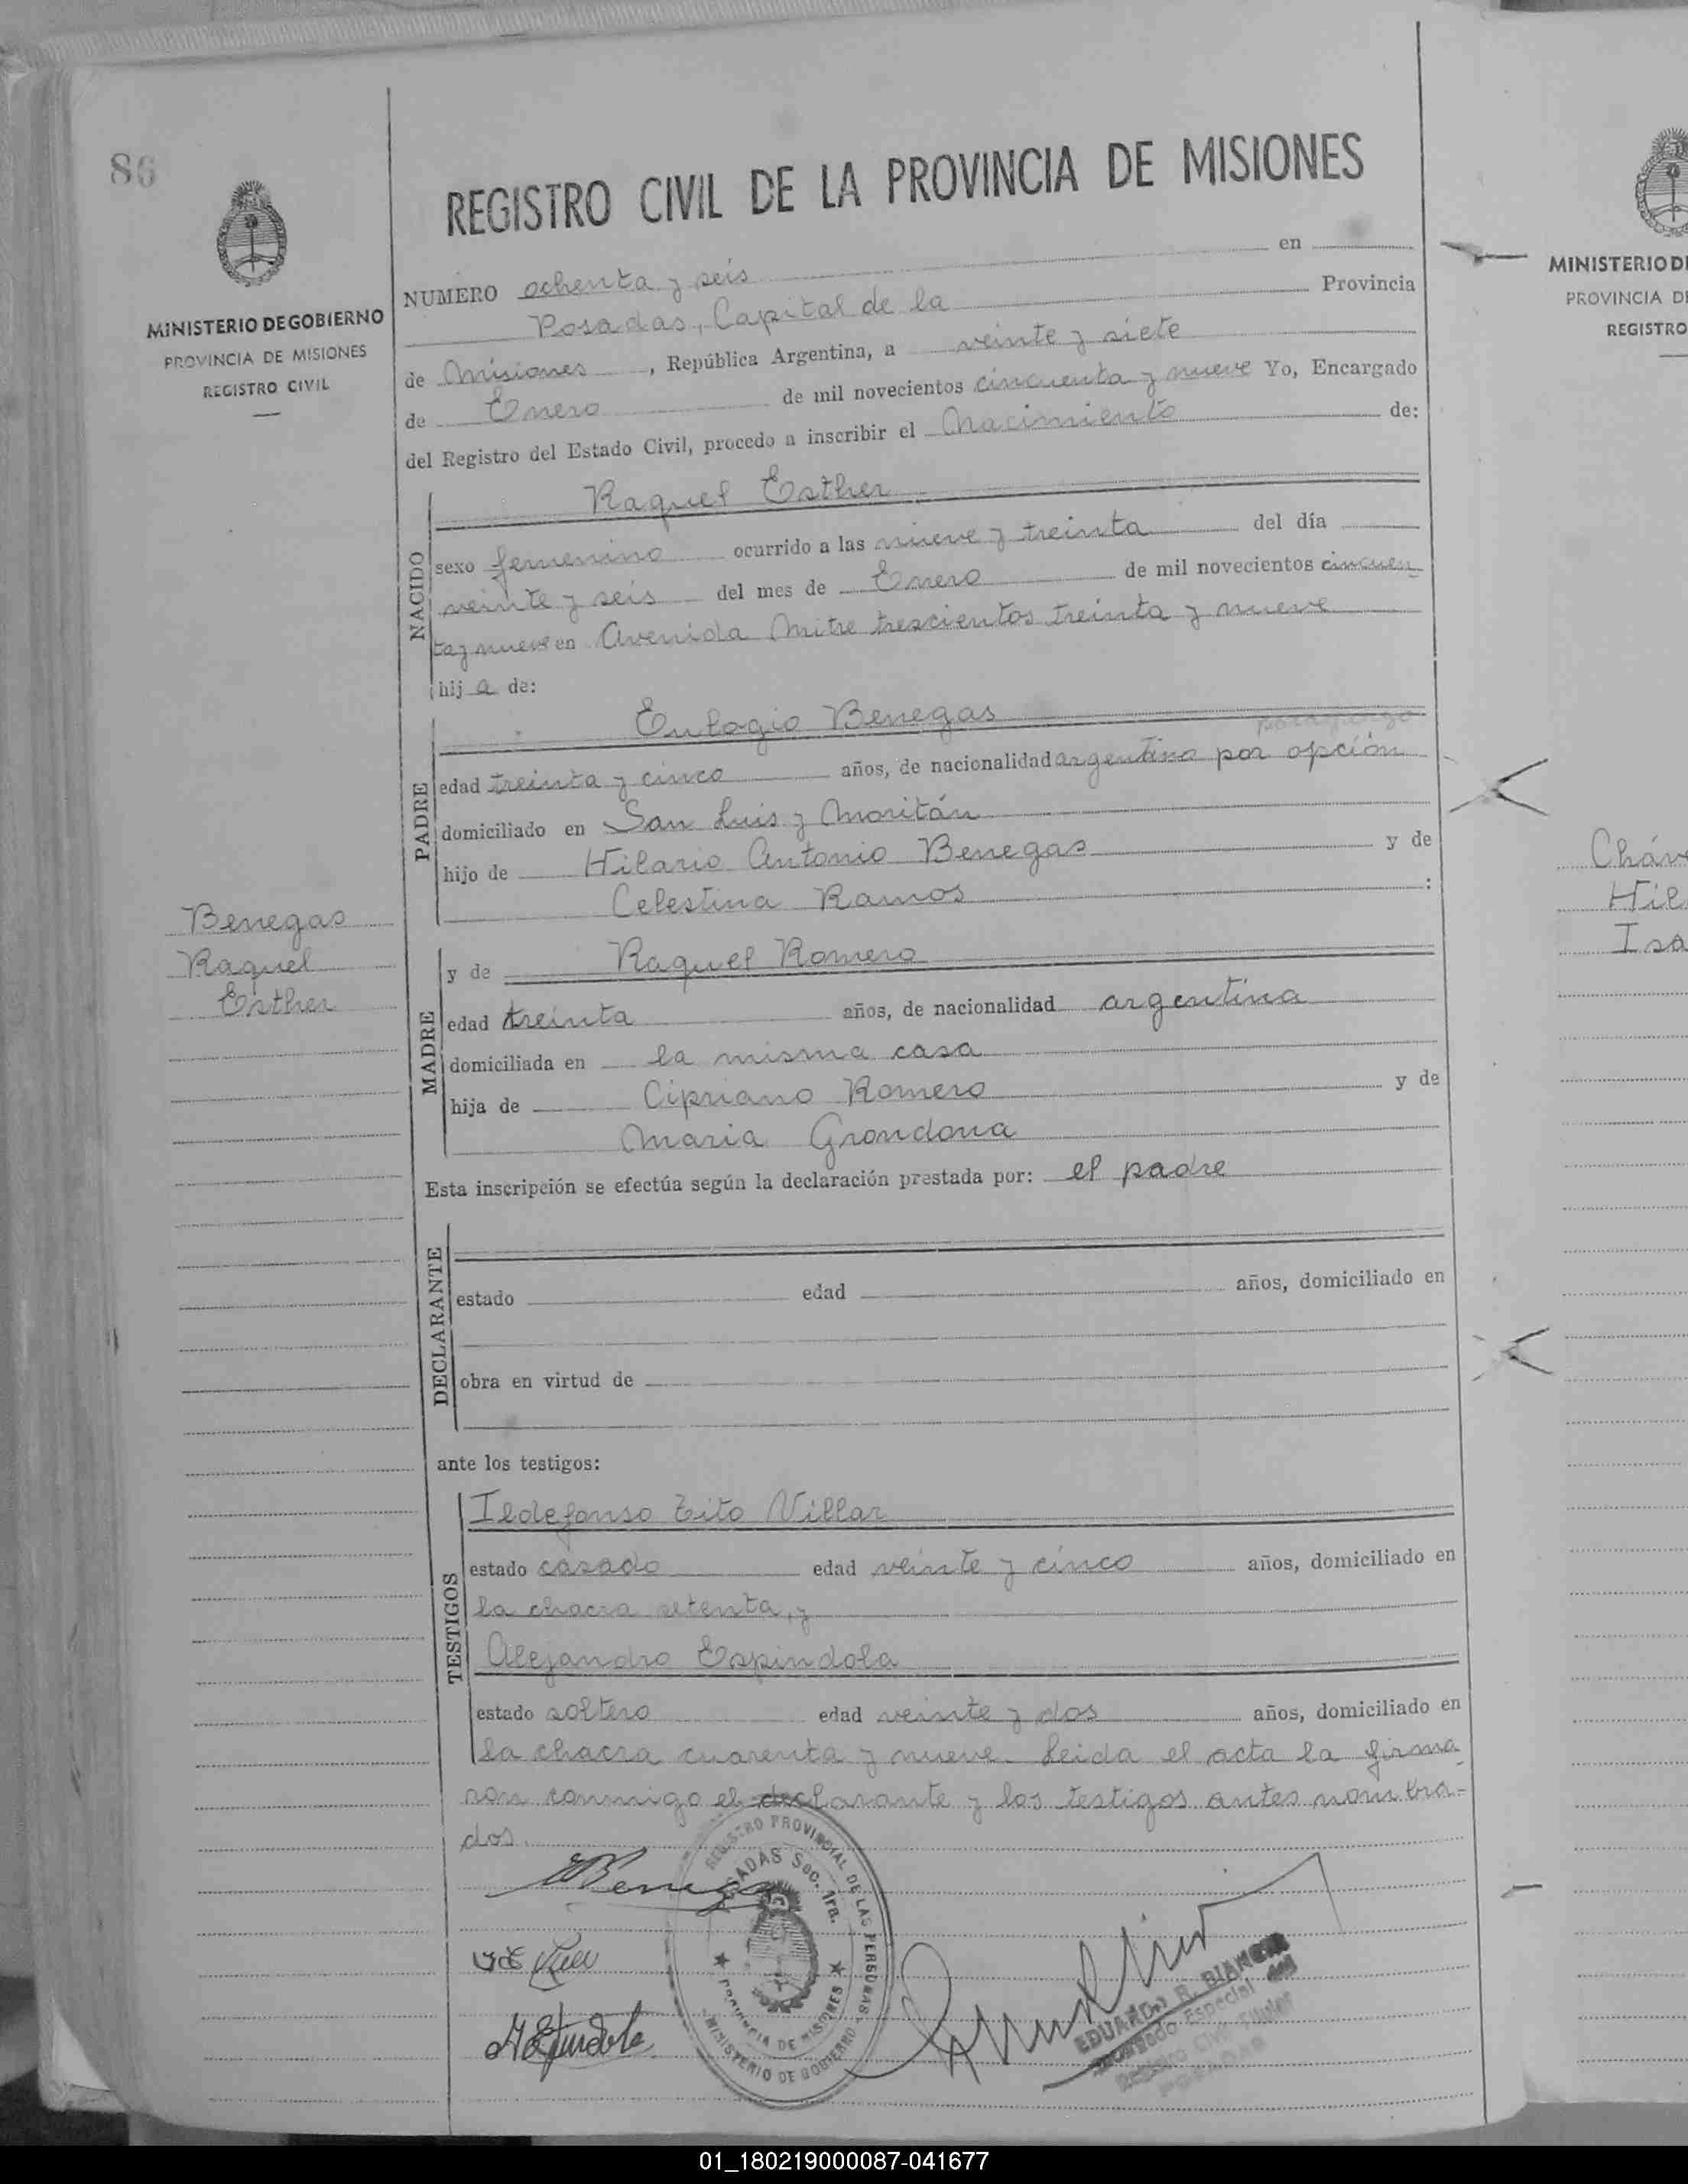 86
MINISTERIO DE GOBIERNO
PROVINCIA DE MISIONES
REGISTRO CIVIL
REGISTRO CIVIL DE LA PROVINCIA DE MISIONES
NUMERO ochenta y seis en
Posadas, Capital de la Provincia
de Misiones, República Argentina, a veinte y siete
de Enero de mil novecientos cincuenta y nueve Yo, Encargado
del Registro del Estado Civil, procedo a inscribir el Nacimiento de:
NACIDO
Raquel Esther
sexo femenino ocurrido a las nueve y treinta del día
veinte y seis del mes de Enero de mil novecientos cincuen
ta y nueve en Avenida Mitre trescientos treinta y nueve
hij a de:
PADRE
Eulogio Benegas
paraguayo
edad treinta y cinco años, de nacionalidad argentino por opción
domiciliado en San Luis y Moritán
hijo de Hilario Antonio Benegas y de
Celestina Ramos :
Benegas
Raquel
Esther
MADRE
y de Raquel Romero
edad treinta años, de nacionalidad argentina
domiciliada en la misma casa
hija de Cipriano Romero y de
Maria Grondona
Esta inscripción se efectúa según la declaración prestada por: el padre
DECLARANTE
estado edad años, domiciliado en
obra en virtud de
ante los testigos:
TESTIGOS
Ildefonso Tito Villar
estado casado edad veinte y cinco años, domiciliado en
la chacra setenta, y
Alejandro Espindola
estado soltero edad veinte y dos años, domiciliado en
la chacra cuarenta y nueve. Leida el acta la firma
ron conmigo el declarante y los testigos antes nombra-
dos.
REGISTRO PROVINCIAL DE LAS PERSONAS
POSADAS Sec. 1ra.
PROVINCIA DE MISIONES
MINISTERIO DE GOBIERNO
EDUARDO R.
Especial
Registro Civil
POSADAS
MINISTERIO D
PROVINCIA D
REGISTRO
Cháv
Hil
Isa
01_180219000087-041677